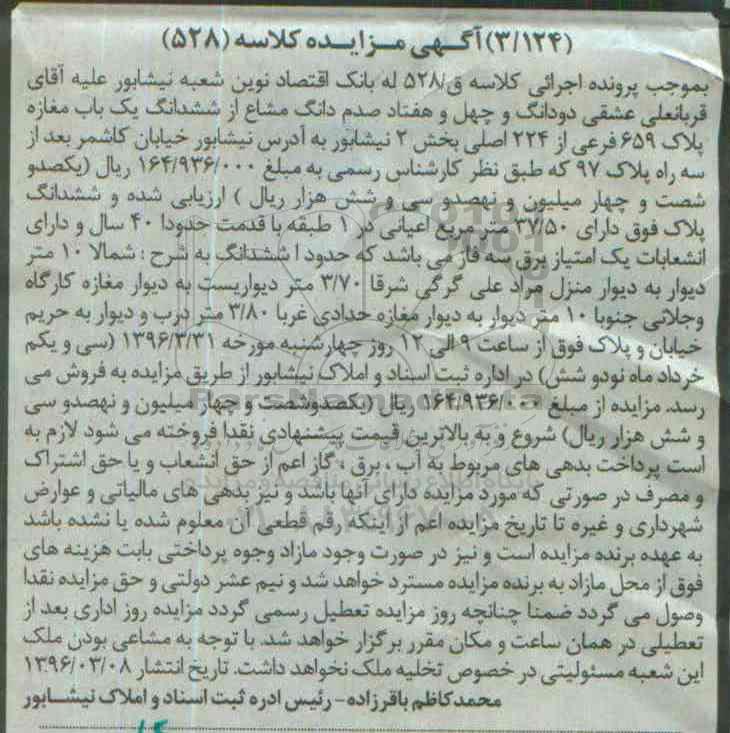 (۳/۱۲۴) آگهی مزایده کلاسه (۵۲۸)
بموجب پرونده اجرائی کلاسه ق/۵۲۸ له بانک اقتصاد نوین شعبه نیشابور علیه آقای
قربانعلی عشقی دودانگ و چهل و هفتاد صدم دانگ مشاع از ششدانگ یک باب مغازه
پلاک ۶۵۹ فرعی از ۲۲۴ اصلی بخش ۲ نیشابور به آدرس نیشابور خیابان کاشمر بعد از
سه راه پلاک ۹۷ که طبق نظر کارشناس رسمی به مبلغ ۱۶۴/۹۳۶/۰۰۰ ریال (یکصدو
شصت و چهار میلیون و نهصدو سی و شش هزار ریال ) ارزیابی شده و ششدانگ
پلاک فوق دارای ۳۷/۵۰ متر مربع اعیانی در ۱ طبقه با قدمت حدودا ۴۰ سال و دارای
انشعابات یک امتیاز برق سه فاز می باشد که حدود ا ششدانگ به شرح : شمالا ۱۰ متر
دیوار به دیوار منزل مراد علی گرگی شرقا ۳/۷۰ متر دیواریست به دیوار مغازه کارگاه
وجلاتی جنوبا ۱۰ متر دیوار به دیوار مغازه حدادی غربا ۳/۸۰ متر درب و دیوار به حریم
خیابان و پلاک فوق از ساعت ۹ الی ۱۲ روز چهارشنبه مورخه ۱۳۹۶/۳/۳۱ (سی و یکم
خرداد ماه نودو شش) در اداره ثبت اسناد و املاک نیشابور از طریق مزایده به فروش می
رسد. مزایده از مبلغ ۱۶۴/۹۳۶/۰۰۰ ریال (یکصدوشصت و چهار میلیون و نهصدو سی
و شش هزار ریال) شروع و به بالاترین قیمت پیشنهادی نقدا فروخته می شود لازم به
است پرداخت بدهی های مربوط به آب ، برق ، گاز اعم از حق انشعاب و یا حق اشتراک
و مصرف در صورتی که مورد مزایده دارای آنها باشد و نیز بدهی های مالیاتی و عوارض
شهرداری و غیره تا تاریخ مزایده اعم از اینکه رقم قطعی آن معلوم شده یا نشده باشد
به عهده برنده مزایده است و نیز در صورت وجود مازاد وجوه پرداختی بابت هزینه های
فوق از محل مازاد به برنده مزایده مسترد خواهد شد و نیم عشر دولتی و حق مزایده نقدا
وصول می گردد ضمنا چنانچه روز مزایده تعطیل رسمی گردد مزایده روز اداری بعد از
تعطیلی در همان ساعت و مکان مقرر برگزار خواهد شد. با توجه به مشاعی بودن ملک
این شعبه مسئولیتی در خصوص تخلیه ملک نخواهد داشت. تاریخ انتشار ۱۳۹۶/۰۳/۰۸
محمدکاظم باقرزاده - رئیس ادره ثبت اسناد و املاک نیشابور